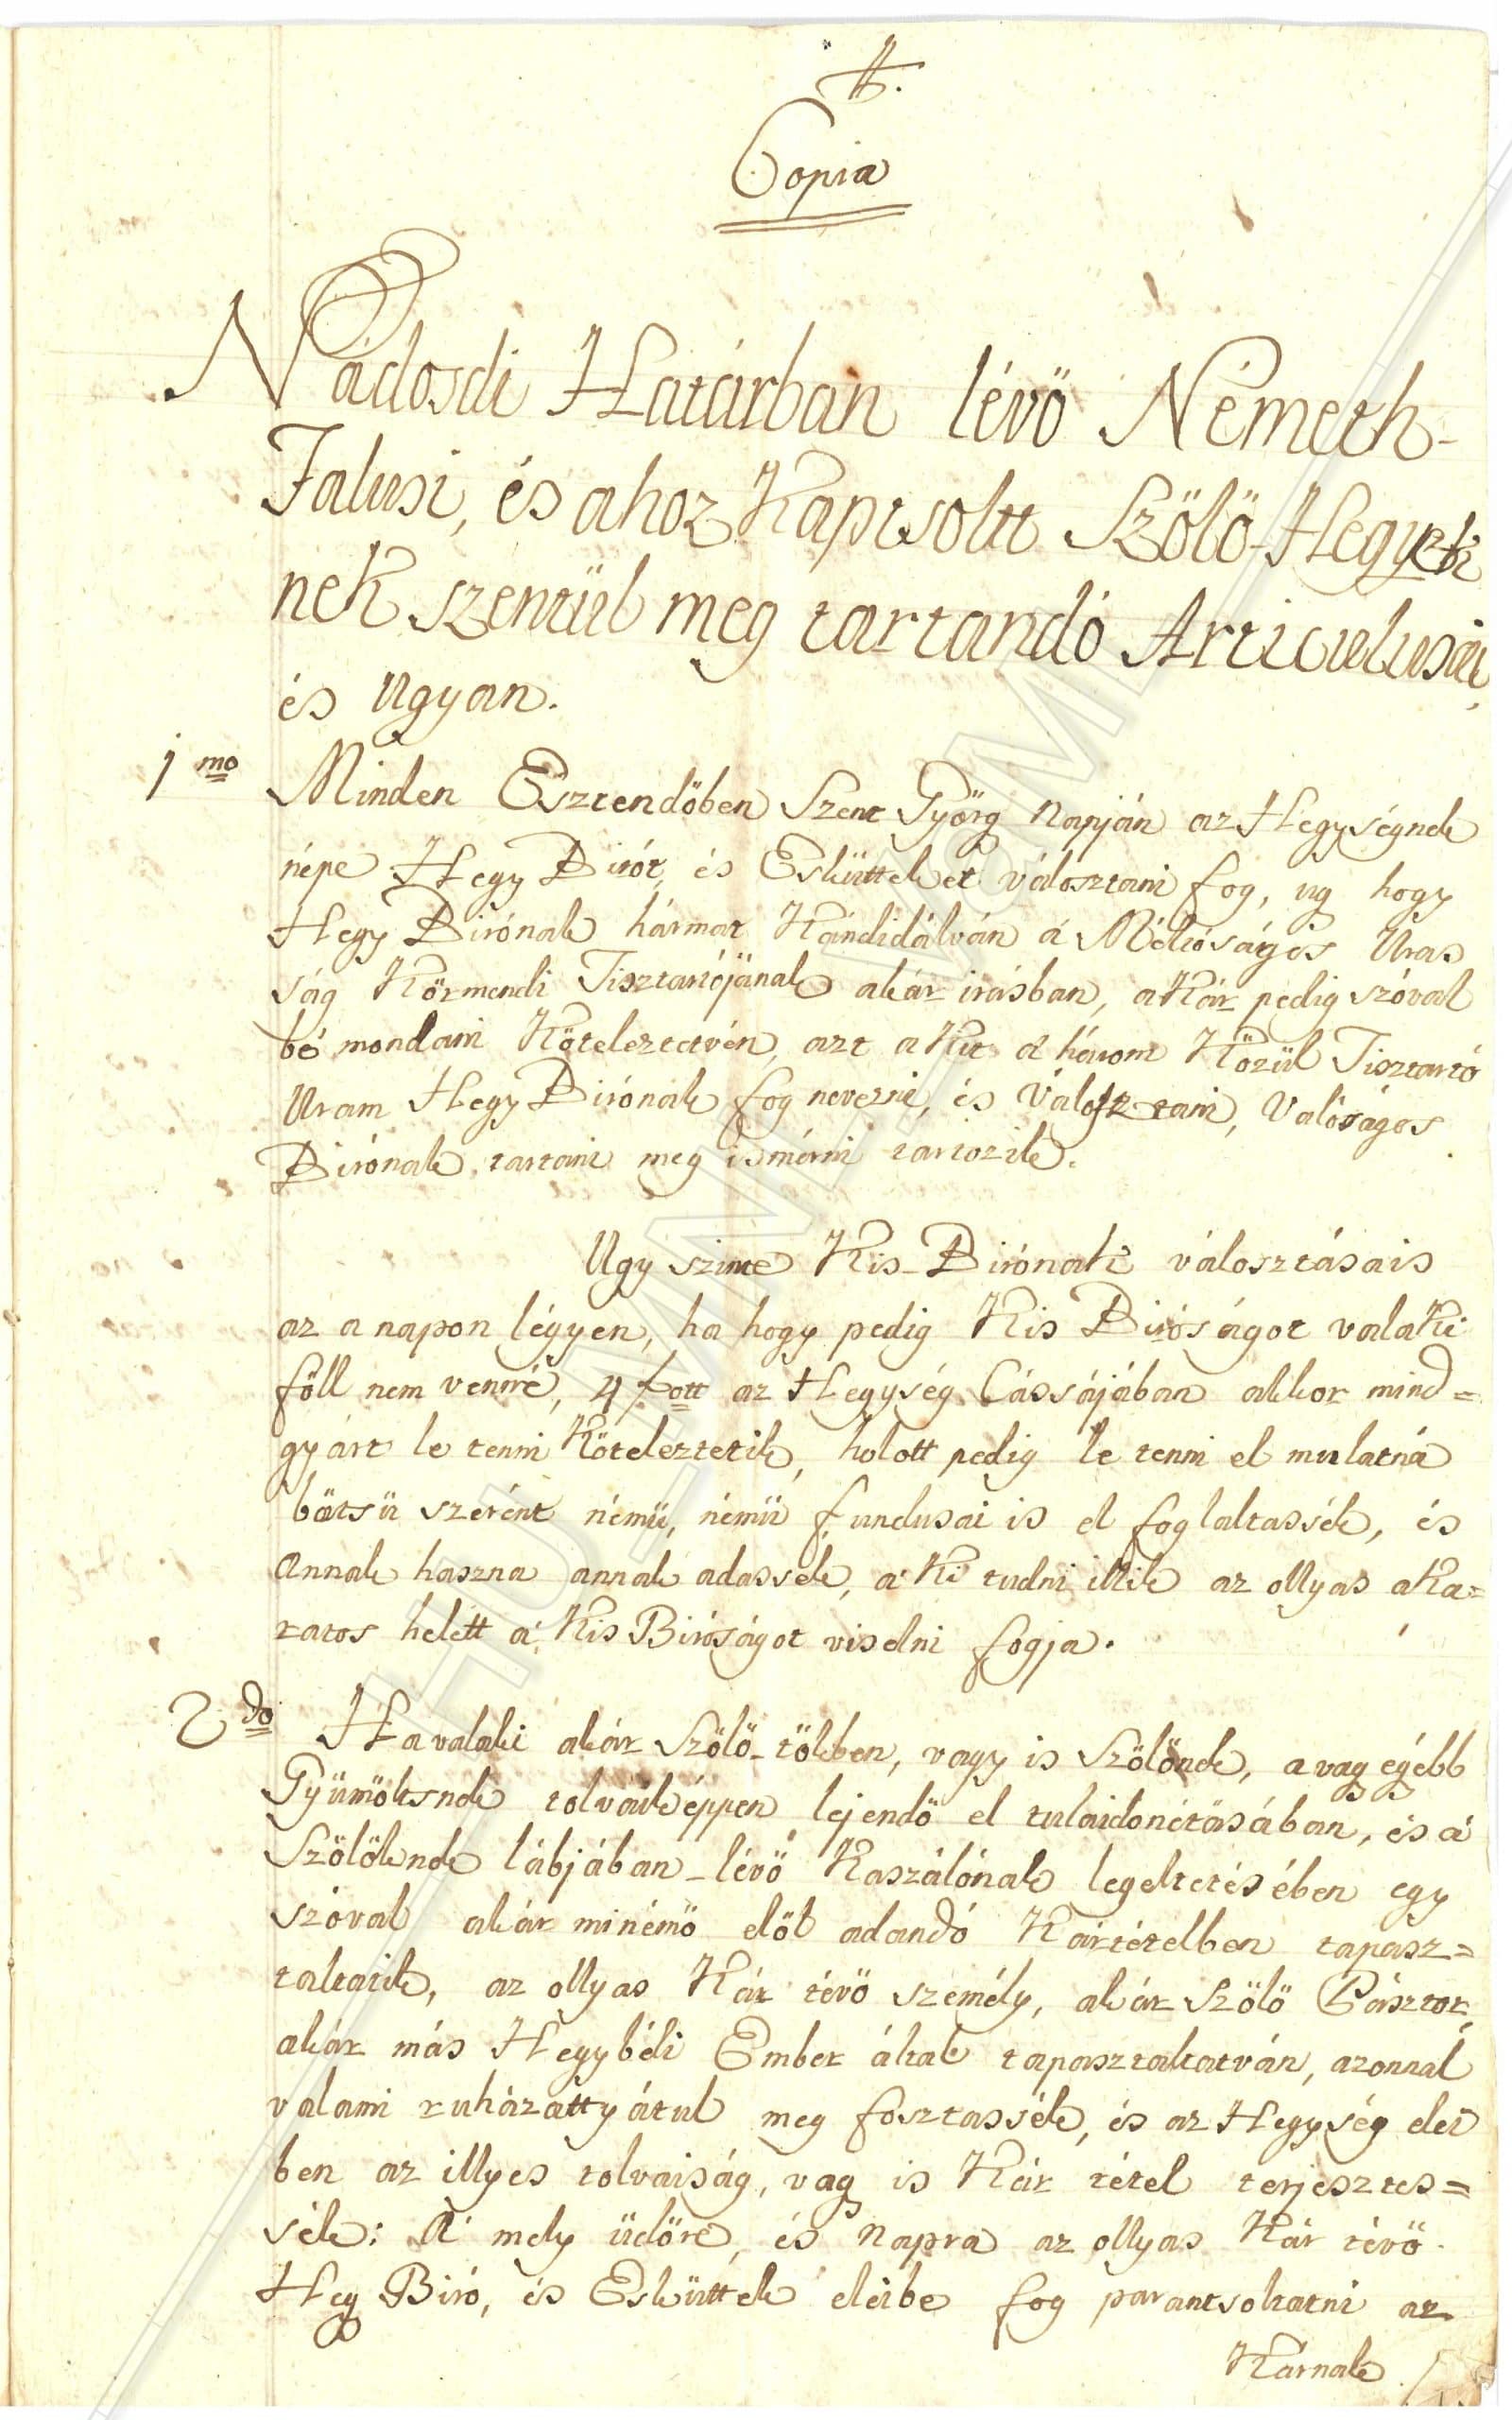 Copia
Nádosdi Határban lévö Németh-
Falusi, és ahoz Kaptsoltt Szölö-Hegyek
nek szentül meg tartandó Articulusai,
és ugyan.
1mo Minden Esztendöben Szent Györg Napján az Hegységnek
népe Hegy Birót, és Eskütteketválosztani fog, ug hogy
Hegy Birónak hármat Kándidálván á Méltóságos Uras
ság Körmendi Tisztartójának akár irásban, aKár pedig szóval
bé mondani Köteleztetvén, azt a Kit á három Közül Tisztartó
Uram Hegy Birónak fog nevezni, és Válosztani, Valóságos
Birónak tartani meg ismérni tartozik.
Ugy szinte Kis-Birónakválosztásais
az a napon légyen, ha hogy pedig Kis Biróságot valaKi
föll nem venné, 4 fott az Hegység Cássájában akkor mind=
gyárt le tenni Köteleztetik, holott pedig le tenni el mulatná
bötsü szerént némü, némü fundusai is el foglaltassék, és
Annak haszna annak adassék, a Ki tudni illik az ollyas aKa=
ratos helett á Kis Biróságot viselni fogja.
2do Ha valaki akár Szölö-tökben, vagy is Szölönek, avag egébb
Gyümöltsnek tolvaiképpen lejendö el tulaidonétásában, és á
Szölöknek lábjában-lévö Kaszálónak legeltetésében egy
szóval akár minémö elöl adandó Kártételben tapasz=
taltatik, az ollyas Kár tévö személy, akár Szölö Pásztor,
akár más Hegybéli Ember által tapasztaltatván, azonnal
valami ruházattyátul meg fosztassék, és az Hegység elei
ben az illyes tolvaiság, vag is Kár tétel terjesztes=
sék: A' mely üdöre, és Napra az ollyas Kár tévö
Heg Biró, és Esküttek eleibe fog parantsoltatni az
Kárnak